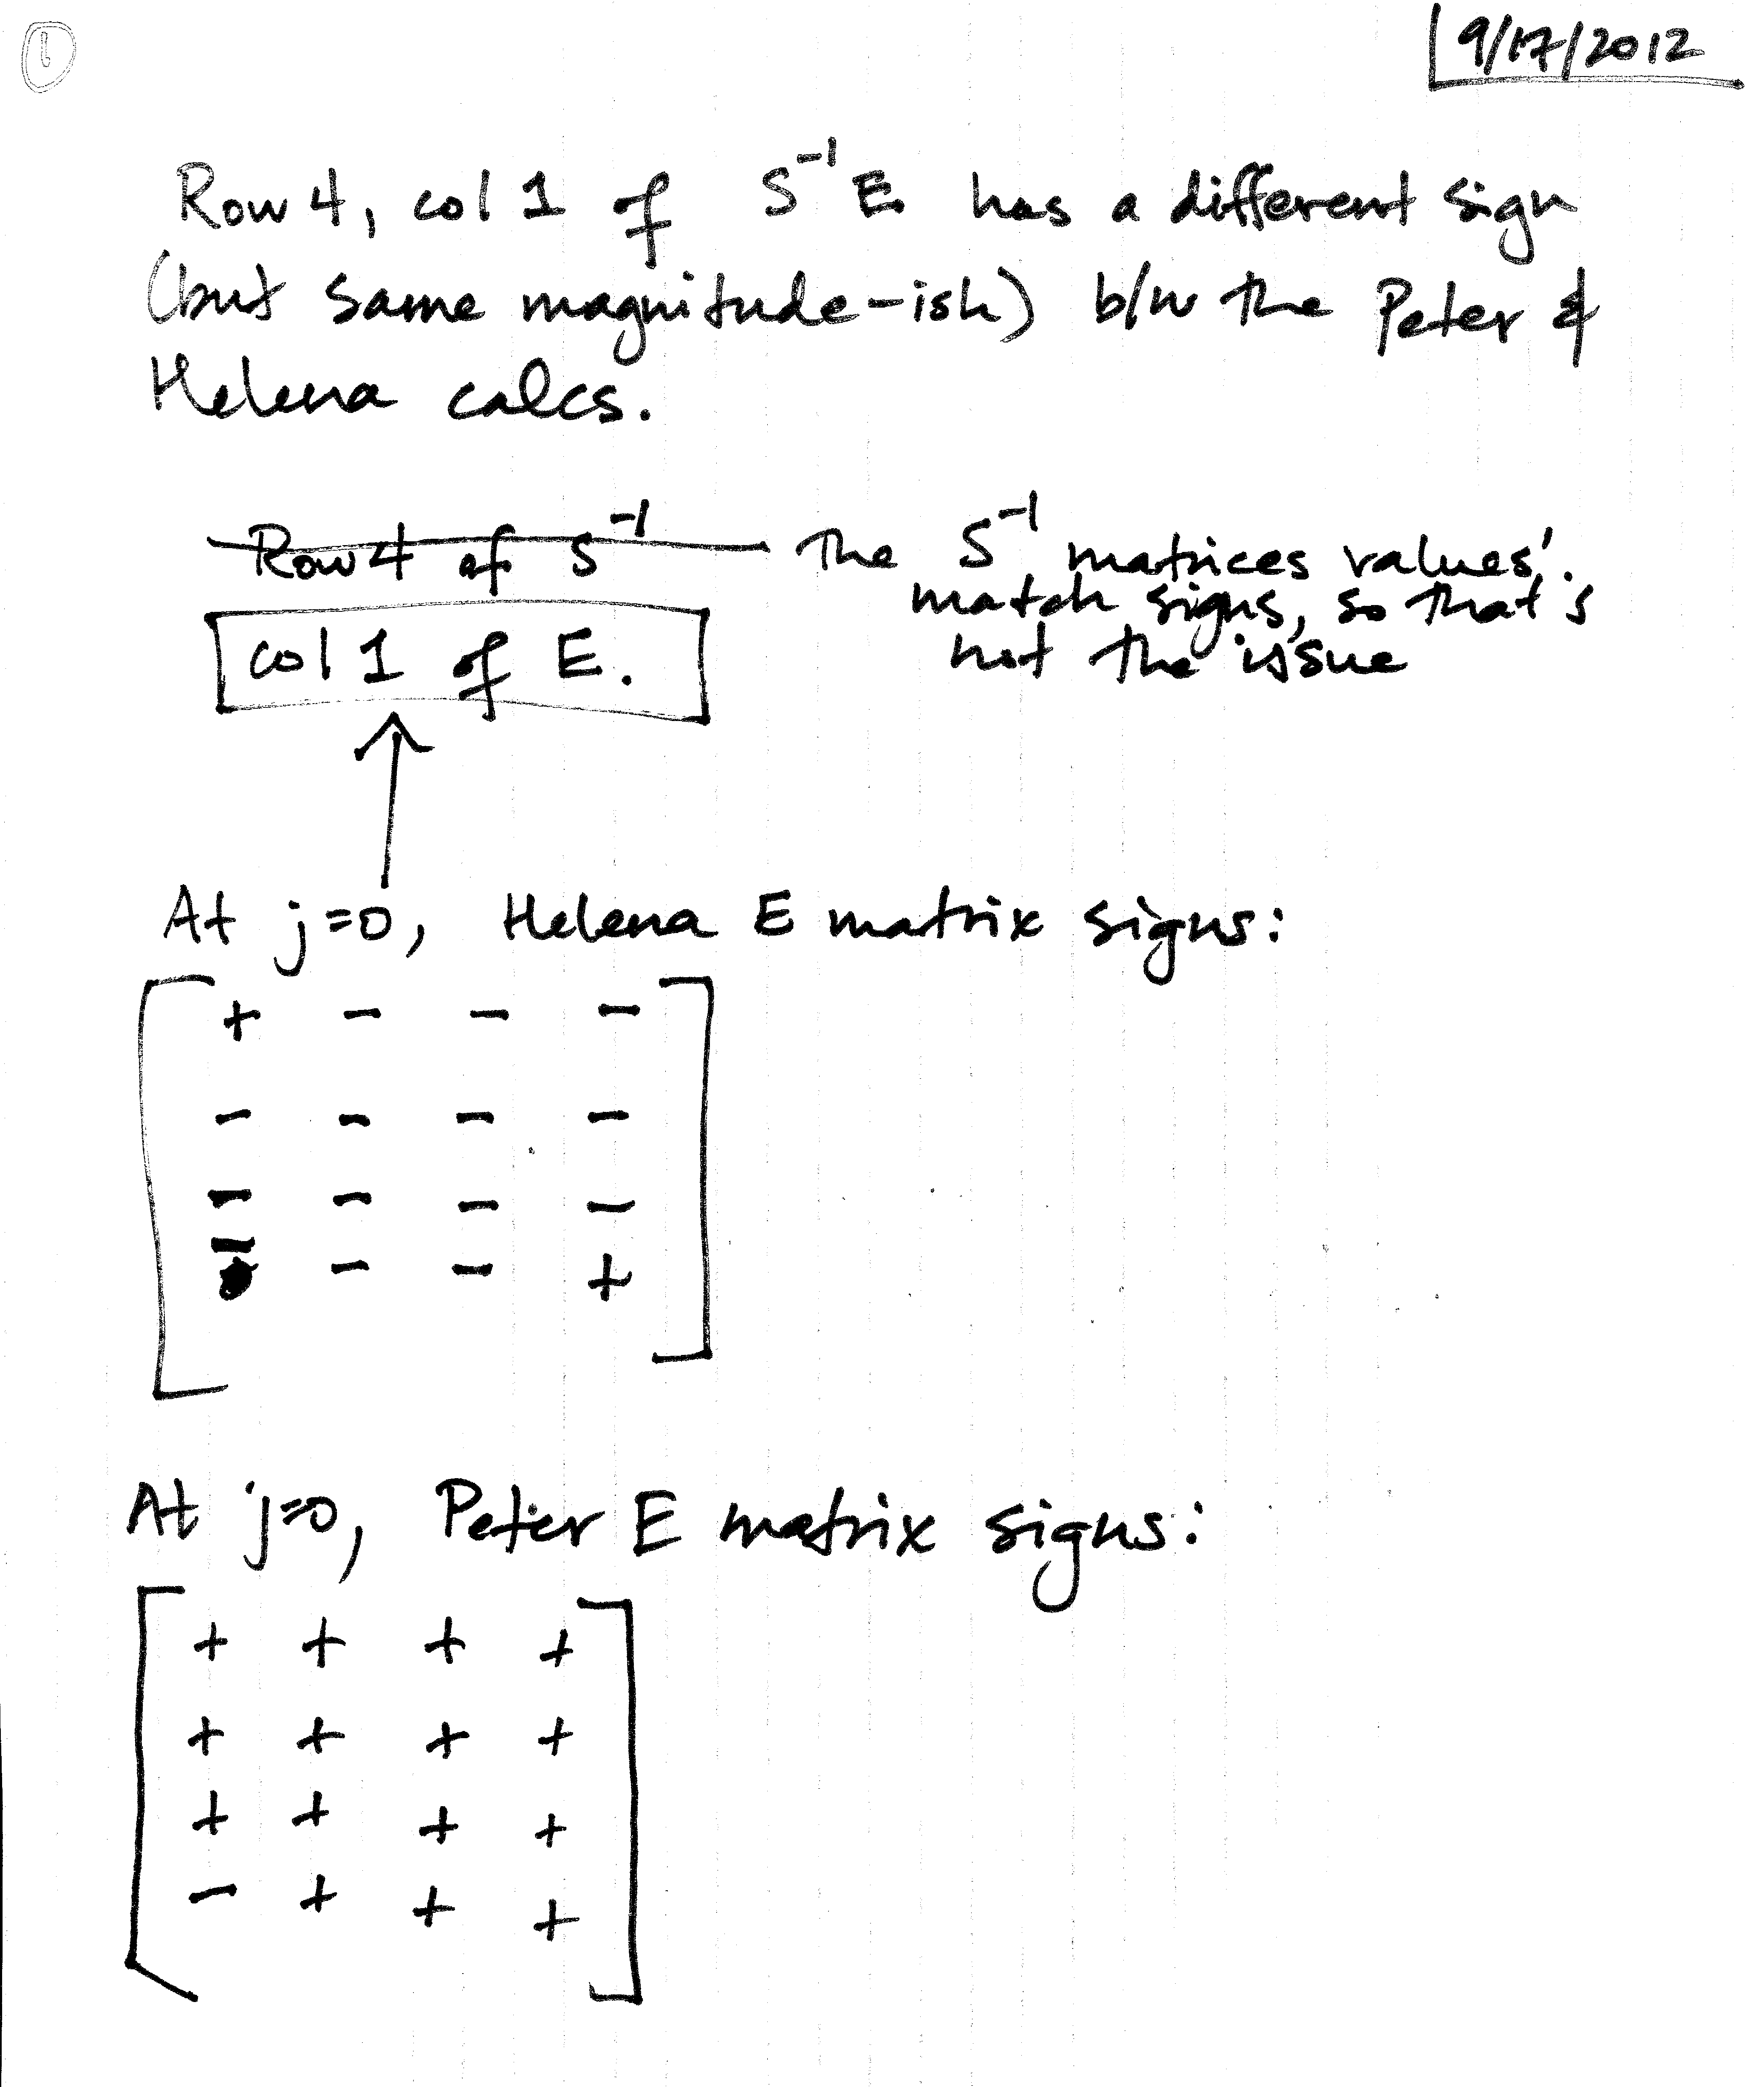 1
9/17/2012
Row 4, col 1 of S⁻¹E has a different sign
(but same magnitude-ish) b/w the Peter &
Helena calcs.
Row 4 of S⁻¹
The S⁻¹ matrices values'
match signs, so that's
not the issue
col 1 of E.
At j=0, Helena E matrix signs:
+ - - -
- - - -
- - - -
- - - +
At j=0, Peter E matrix signs:
+ + + +
+ + + +
+ + + +
- + + +